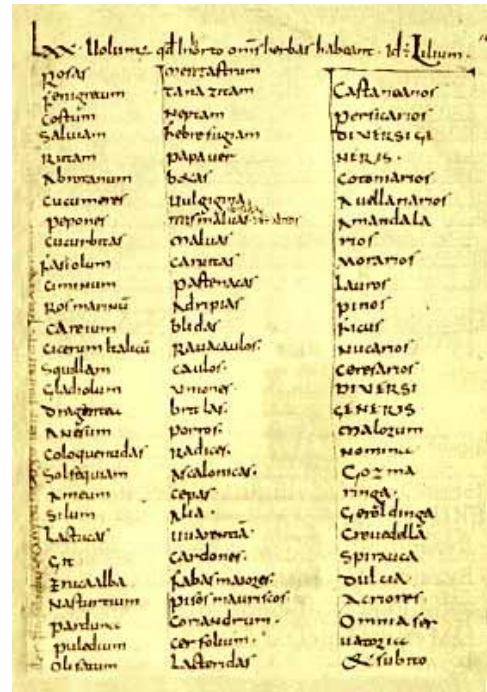 LXX. Uolum; qd Inorto omis herbas habeant. Id; Lilium.
Rosas
fenigrecum
Costum
Saluiam
Rutam
Abrotanum
Cucumeres
pepones
Cucurbitas
fasiolum
Ciminum
Ros marinū
Careium
Cicerum Italicū
Squillam
Gladiolum
Dragantea
Anesum
Coloquentidas
Solsequiam
Ameum
Silum
Lactucas
Git
Erucaalba
Nasturtium
parduna
puledium
Olisatum
mentastrum
Tanazitam
Neptam
febrefugiam
papauer
betas
Uulgigina
malicas
Maluas
Caruitas
pastenacas
Adripias
blidas
Rauacaulos.
Caulos.
Uniones.
britlas.
porros.
Radices.
Ascalonicas.
Cepas
Alia.
Uuarentiā.
Cardones.
fabas maiores.
pisos mauriscos
Coriandrum.
Cerfolium.
Lacteridas
Castanearios
Persicarios
DIVERSI GE
NERIS.
Cotoniarios
Auellanarios
Amandala
rios
Morarios
Lauros
pinos
ficus
Nucarios
Ceresarios
DIVERSI
GENERIS
Malorum
Nomina
Gozma
ringa.
Geroldinga
Creuedella
Spirauca
Dulcia
Acriores.
Omnia ser
uatoria
Et subito